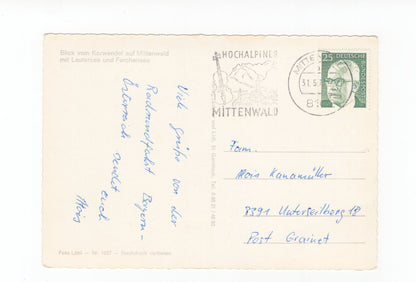 Blick vom Karwendel auf Mittenwald
mit Lautersee und Ferchensee
HOCHALPINER
MITTENWALD
31.5.
25
DEUTSCHE
BUNDESPOST
Viele Grüße von der
Radrundfahrt Bayern-
Österreich sendet
euch
Alois
Fam.
Alois Kanamüller
8391 Unterseilberg 18
Post Grainet
Foto Löbl — Nr. 1037 — Nachdruck verboten